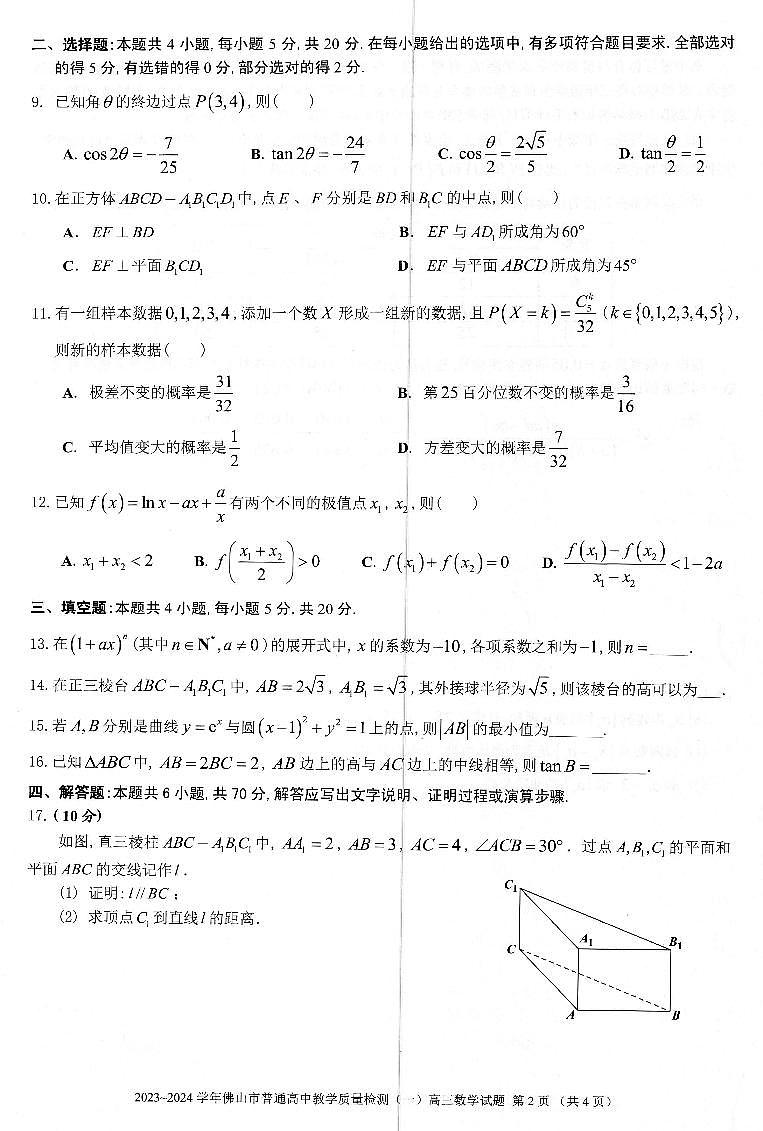 二、选择题:本题共 4 小题,每小题 5 分,共 20 分. 在每小题给出的选项中,有多项符合题目要求. 全部选对
的得 5 分,有选错的得 0 分,部分选对的得 2 分.
9. 已知角 θ 的终边过点 P(3,4),则(  )
A. cos2θ = −7/25 B. tan2θ = −24/7 C. cos θ/2 = 2√5/5 D. tan θ/2 = 1/2
10. 在正方体 ABCD − A₁B₁C₁D₁ 中,点 E 、 F 分别是 BD 和 B₁C 的中点,则(  )
A. EF ⊥ BD B. EF 与 AD₁ 所成角为 60°
C. EF ⊥ 平面 B₁CD₁ D. EF 与平面 ABCD 所成角为 45°
11. 有一组样本数据 0,1,2,3,4 ,添加一个数 X 形成一组新的数据,且 P(X = k) = C₅ᵏ/32 (k ∈ {0,1,2,3,4,5}),
则新的样本数据(  )
A. 极差不变的概率是 31/32 B. 第 25 百分位数不变的概率是 3/16
C. 平均值变大的概率是 1/2 D. 方差变大的概率是 7/32
12. 已知 f(x) = ln x − ax + a/x 有两个不同的极值点 x₁ , x₂ ,则(  )
A. x₁ + x₂ < 2 B. f((x₁ + x₂)/2) > 0 C. f(x₁) + f(x₂) = 0 D. (f(x₁) − f(x₂))/(x₁ − x₂) < 1 − 2a
三、填空题:本题共 4 小题,每小题 5 分. 共 20 分.
13. 在 (1 + ax)ⁿ (其中 n ∈ N*, a ≠ 0 )的展开式中, x 的系数为 −10 ,各项系数之和为 −1 ,则 n = ____.
14. 在正三棱台 ABC − A₁B₁C₁ 中, AB = 2√3 , A₁B₁ = √3 ,其外接球半径为 √5 ,则该棱台的高可以为___.
15. 若 A, B 分别是曲线 y = eˣ 与圆 (x − 1)² + y² = 1 上的点,则 |AB| 的最小值为______.
16. 已知 △ABC 中, AB = 2BC = 2 , AB 边上的高与 AC 边上的中线相等,则 tan B = ______.
四、解答题:本题共 6 小题,共 70 分,解答应写出文字说明、证明过程或演算步骤.
17.(10 分)
如图,直三棱柱 ABC − A₁B₁C₁ 中, AA₁ = 2 , AB = 3 , AC = 4 , ∠ACB = 30° . 过点 A, B₁, C₁ 的平面和
平面 ABC 的交线记作 l .
(1) 证明: l // BC ;
(2) 求顶点 C₁ 到直线 l 的距离.
C₁
A₁
B₁
C
A
B
2023~2024 学年佛山市普通高中教学质量检测(一)高三数学试题 第 2 页 (共 4 页)